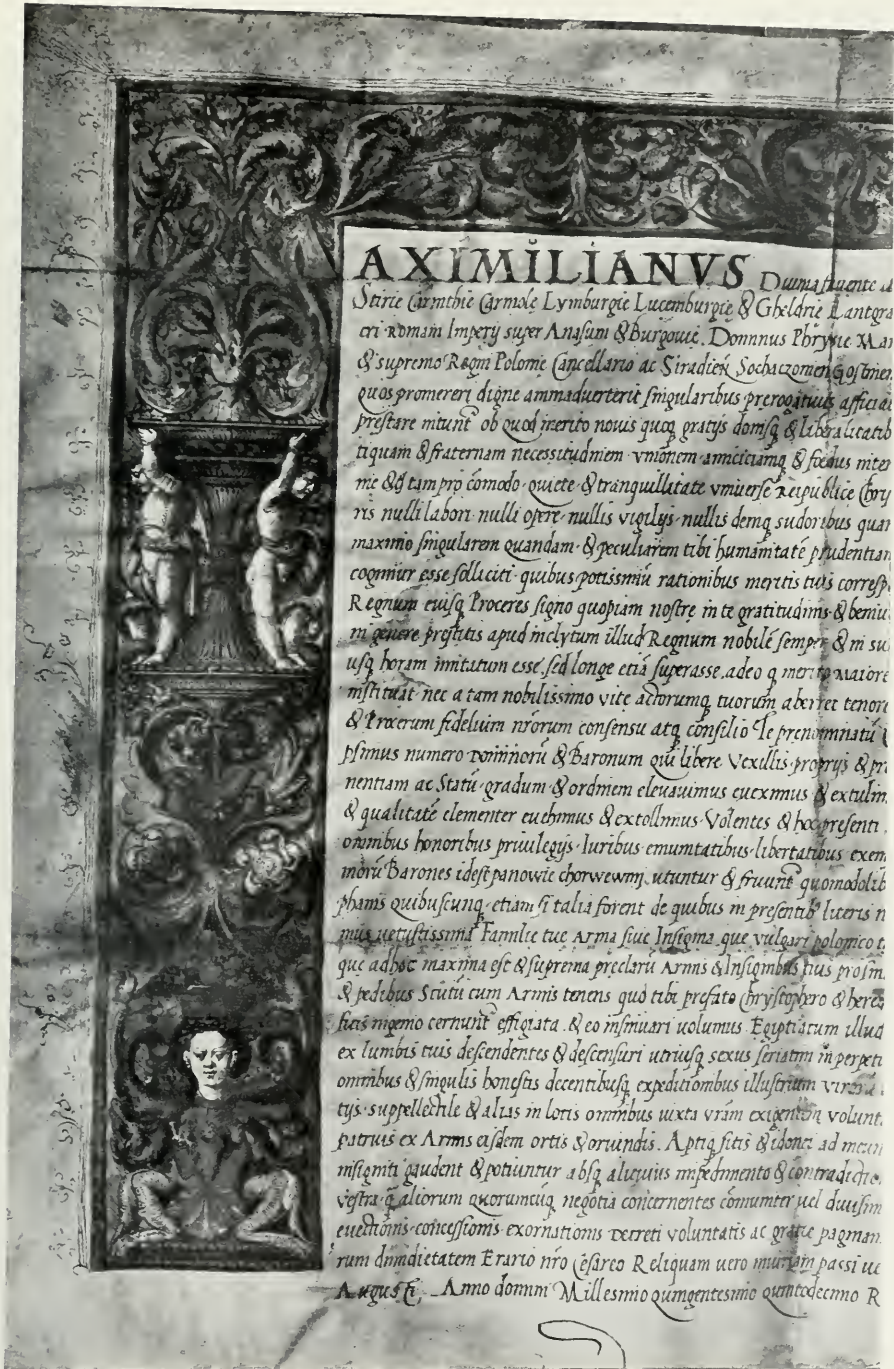 AXIMILIANVS Diuina fauente
Stirie Carinthie Carniole Lymburgie Lucemburgie & Gheldrie Lantgra
cri Romani Imperij super Anasum & Burgouie. Domnnus Phrysie Mar
& supremo Regni Polonie Cancellario ac Siradien̄ Sochaczouien Gostinen
quos promereri digne animaduerterit singularibus prerogatiuis afficiat
prestare nitunt̄ ob quod merito nouis quoq gratijs donisq & liberalitatib
tiquam & fraternam necessitudinem vnionem amiciciamq & foedus inter
me & tam pro cōmodo quiete & tranquillitate vniuerse Reipublice Chry
ris nulli labori nulli opere nullis vigilijs nullis demq sudoribus quan
maximo singularem quandam & peculiarem tibi humanitatē prudentiam
cognitur esse solliciti quibus potissimū rationibus meritis tuis corresp
Regnum eiusq Proceres signo quopiam nostre in te gratitudinis & beniu
ni genere prestitis apud inclytum illud Regnum nobilē semper & in su
usq horam imitatum esse sed longe etiā superasse adeo q merito maiore
instituāt nec a tam nobilissimo vite actorumq tuorum aberret tenore
& Procerum fidelium nr̄orum consensu atq consilio Te prenominatū
psimus numero Dominorū & Baronum qui libere Vexillis proprijs & pr
nentiam ac Statū gradum & ordinem eleuauimus eueximus & extulim
& qualitatē clementer euehimus & extollimus Volentes & hoc presenti
omnibus honoribus priuilegijs Iuribus emunitatibus libertatibus exem
morū Barones idest panowie chorwewmj utuntur & fruunt̄ quomodolib
phanis quibuscunq etiam si talia forent de quibus in presentib' literis n
mus uetustissimā Familie tue Arma siue Insignia que vulgari polonico t
que adhoc maxima est & suprema preclarū Armis & Insignibus tuis proxim
& pedibus Scutū cum Armis tenens quod tibi prefato Chrystophero & hered
ficis ingenio cernunt̄ effigiata & eo insinuari uolumus Egiptiatum illud
ex lumbis tuis descendentes & descensuri utriusq sexus seriatim in perpet
omnibus & singulis honestis decentibusq expeditionibus illustrium virorū
tijs suppellectile & alias in locis omnibus iuxta vrām exigentem volunt
patruis ex Armis eisdem ortis & oriundis. Aptiq sitis & idonei ad meun
insigniti gaudent & potiuntur absq alicuius impedimento & contradictio
vestra q aliorum quorumcūq negotia concernentes cōmuniter uel diuisim
euectionis concessionis exornationis Decreti voluntatis ac gratie pagmam
rum dimidietatem Erario nr̄o Cesareo Reliquam uero iniuriam passi
Augusti. Anno domini Millesimo quingentesimo quintodecimo R